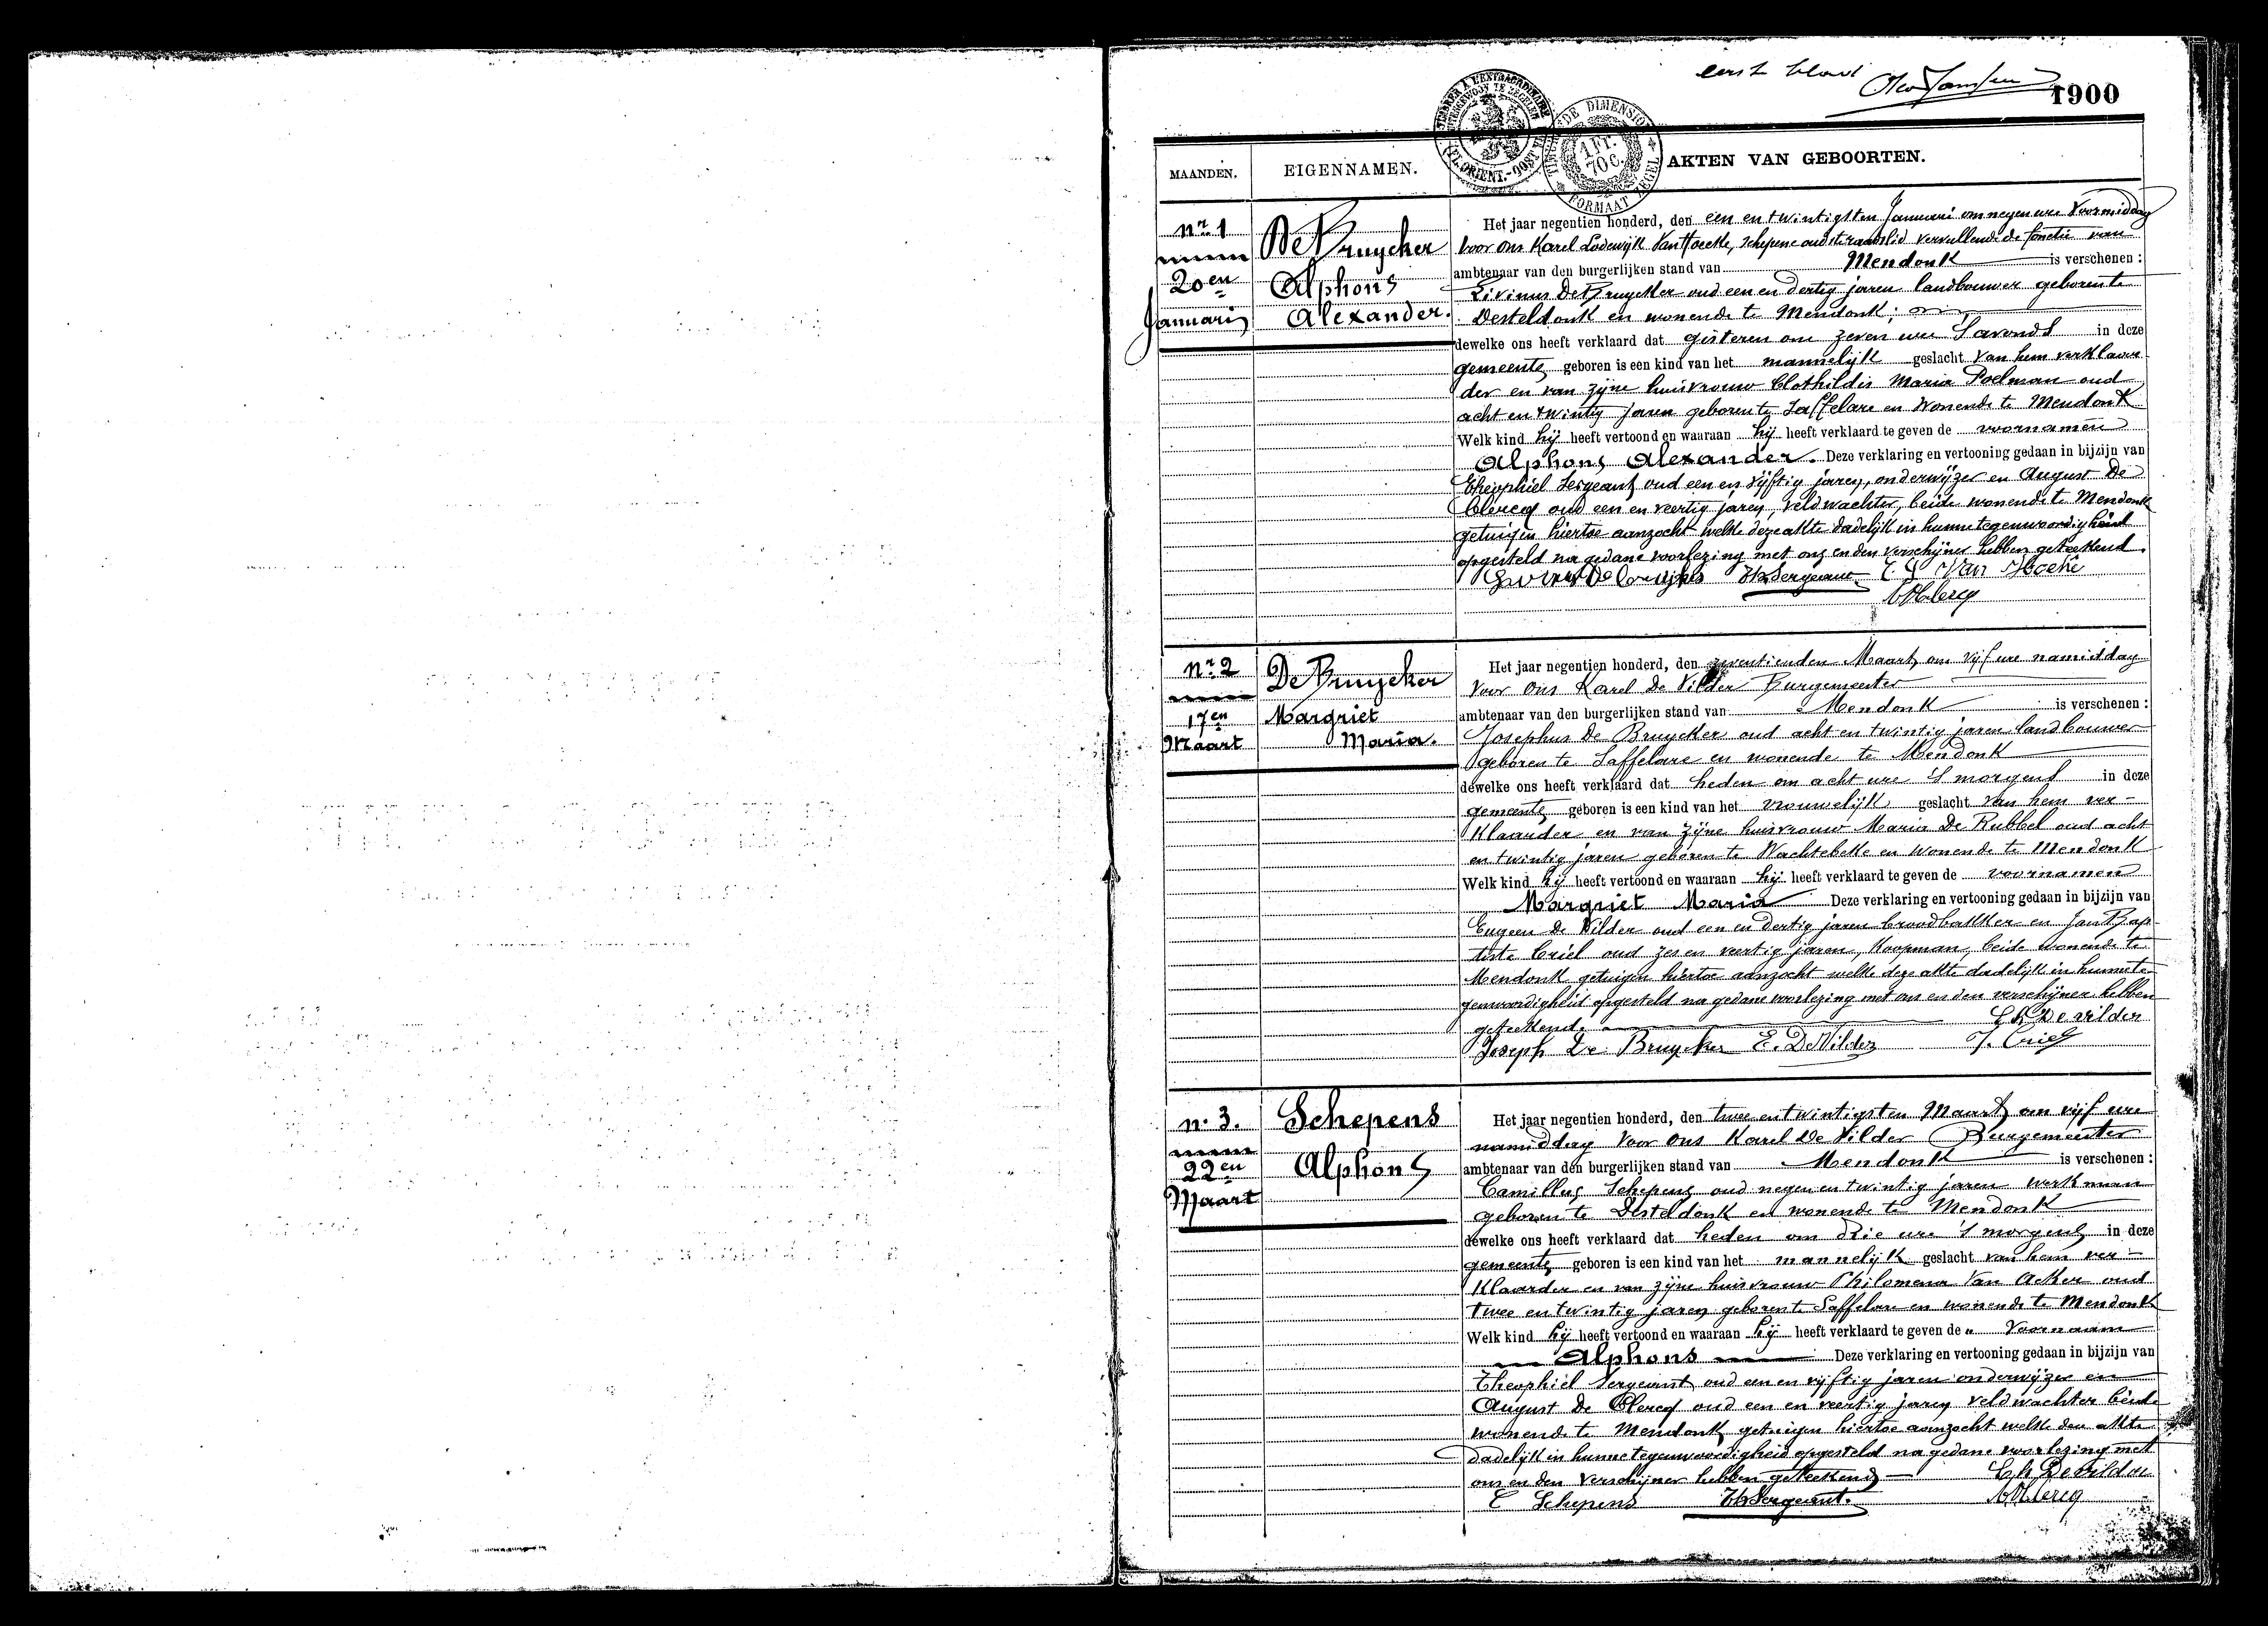 eerste blad
1900
TIMBRER A L'EXTRAORDINAIRE
BUITENGEWOON TE ZEGELEN
FL. ORIENT.-OOST VL.
TIMBRE DE DIMENSION
1 Fr. 70 c.
FORMAAT ZEGEL
MAANDEN. EIGENNAMEN. AKTEN VAN GEBOORTEN.
nr. 1
20en
Januarij
De Bruycker
Alphons
Alexander.
Het jaar negentien honderd, den een en twintigsten Januari om negen ure voormiddag
voor ons Karel Lodewijk Van Hoecke, schepene oudste raadslid vervullende de functie van
ambtenaar van den burgerlijken stand van Mendonk is verschenen :
Livinus De Bruycker oud een en dertig jaren landbouwer geboren te
Desteldonk en wonende te Mendonk;
dewelke ons heeft verklaard dat gisteren om zeven ure 's avonds in deze
gemeente geboren is een kind van het mannelijk geslacht van hem verklaar-
der en van zijne huisvrouw Clothildis Maria Poelman oud
acht en twintig jaren geboren te Saffelare en wonende te Mendonk
Welk kind hij heeft vertoond en waaraan hij heeft verklaard te geven de voornamen
Alphons Alexander. Deze verklaring en vertooning gedaan in bijzijn van
Theophiel Sergeant oud een en vijftig jaren, onderwijzer en August De
Clercq oud een en veertig jaren, veldwachter, beide wonende te Mendonk
getuigen hiertoe aanzocht welke deze akte dadelijk in hunne tegenwoordigheid
opgesteld na gedane voorlezing met ons en den verschijner hebben geteekend.
Th Sergeant Van Hoecke
nr. 2
17en
Maart
De Bruycker
Margriet
Maria.
Het jaar negentien honderd, den zeventienden Maart om vijf ure namiddag
voor ons Karel De Vilder Burgemeester
ambtenaar van den burgerlijken stand van Mendonk is verschenen :
Josephus De Bruycker oud acht en twintig jaren landbouwer
geboren te Saffelare en wonende te Mendonk
dewelke ons heeft verklaard dat heden om acht ure 's morgens in deze
gemeente geboren is een kind van het vrouwelijk geslacht van hem ver-
klaarder en van zijne huisvrouw Maria De Rubbel oud acht
en twintig jaren geboren te Wachtebeke en wonende te Mendonk
Welk kind hij heeft vertoond en waaraan hij heeft verklaard te geven de voornamen
Margriet Maria Deze verklaring en vertooning gedaan in bijzijn van
Eugeen De Vilder oud een en dertig jaren broodbakker en Jan Bap-
tiste Criel oud zes en veertig jaren, koopman, beide wonende te
Mendonk getuigen hiertoe aanzocht welke deze akte dadelijk in hunne te-
genwoordigheid opgesteld na gedane voorlezing met ons en den verschijner hebben
geteekend. Ch De Vilder
Joseph De Bruycker E. De Vilder J. Criel
n. 3.
22en
Maart
Schepens
Alphons
Het jaar negentien honderd, den twee en twintigsten Maart om vijf ure
namiddag voor ons Karel De Vilder Burgemeester
ambtenaar van den burgerlijken stand van Mendonk is verschenen :
Camillus Schepens oud negen en twintig jaren werkman
geboren te Desteldonk en wonende te Mendonk
dewelke ons heeft verklaard dat heden om drie ure 's morgens in deze
gemeente geboren is een kind van het mannelijk geslacht van hem ver-
klaarder en van zijne huisvrouw Philomena Van Acker oud
twee en twintig jaren geboren te Saffelare en wonende te Mendonk
Welk kind hij heeft vertoond en waaraan hij heeft verklaard te geven de voornaam
Alphons Deze verklaring en vertooning gedaan in bijzijn van
Theophiel Sergeant oud een en vijftig jaren onderwijzer en
August De Clercq oud een en veertig jaren veldwachter beide
wonende te Mendonk getuigen hiertoe aanzocht welke deze akte
dadelijk in hunne tegenwoordigheid opgesteld na gedane voorlezing met
ons en den verschijner hebben geteekend Ch De Vilder
C Schepens Th Sergeant.